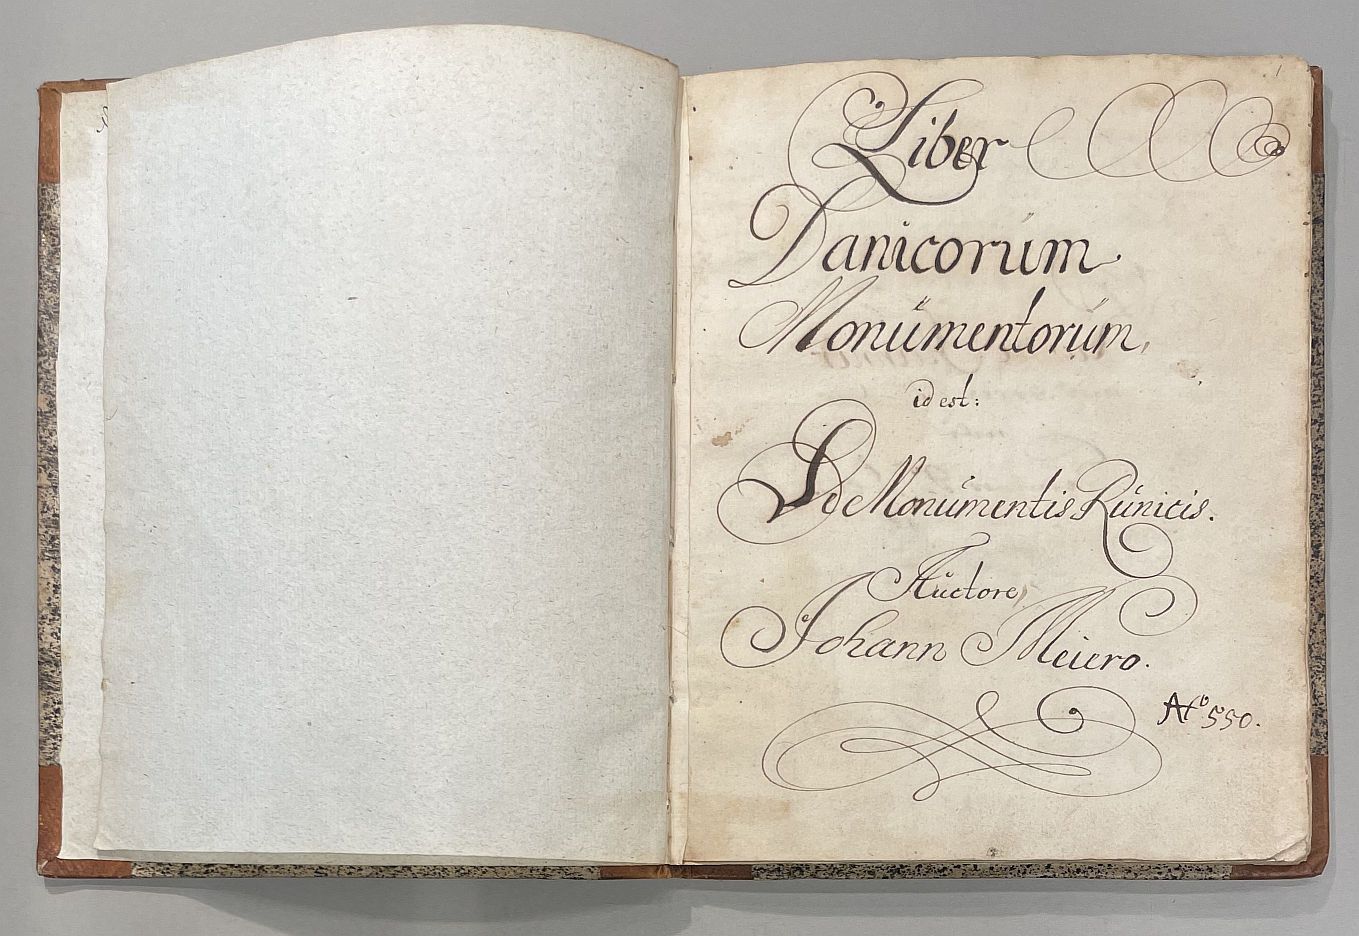 1
Liber
Danicorům
Monůmentorům,
id est:
De Monůmentis Růnicis.
Aůctore
Johann Meiero.
No 550.